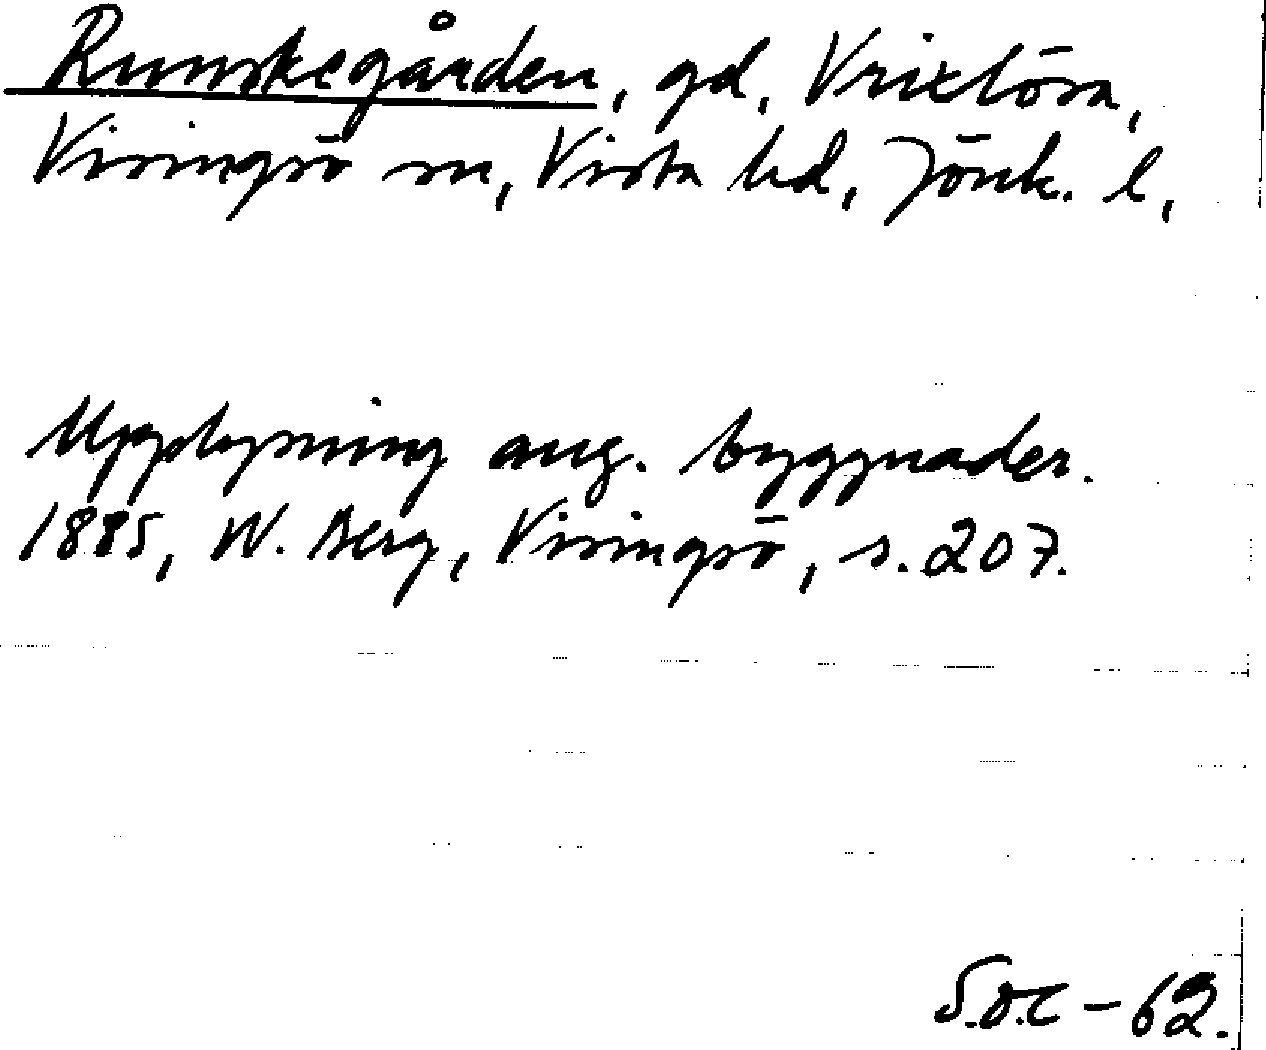 Runskegården, gd, Vrixlösa,
Visingsö sn, Vista hd, Jönk. l,
Upplysning ang. byggnader.
1885, W. Berg, Visingsö, s. 207.
S.O.C - 62.